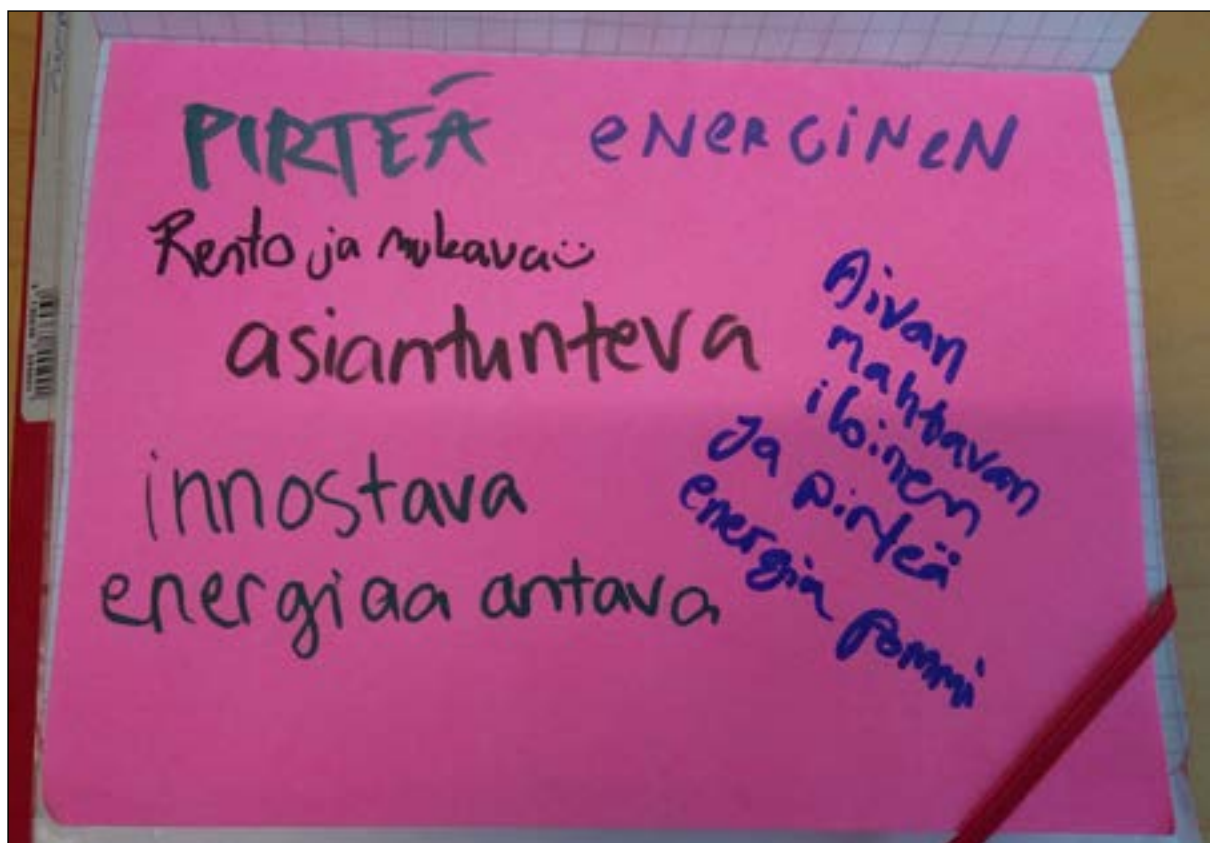 PIRTEÄ eNeRGiNeN
Rento ja mukava :)
asiantunteva
innostava
energiaa antava
Aivan
mahtavan
iloinen
ja pirteä
energia pommi